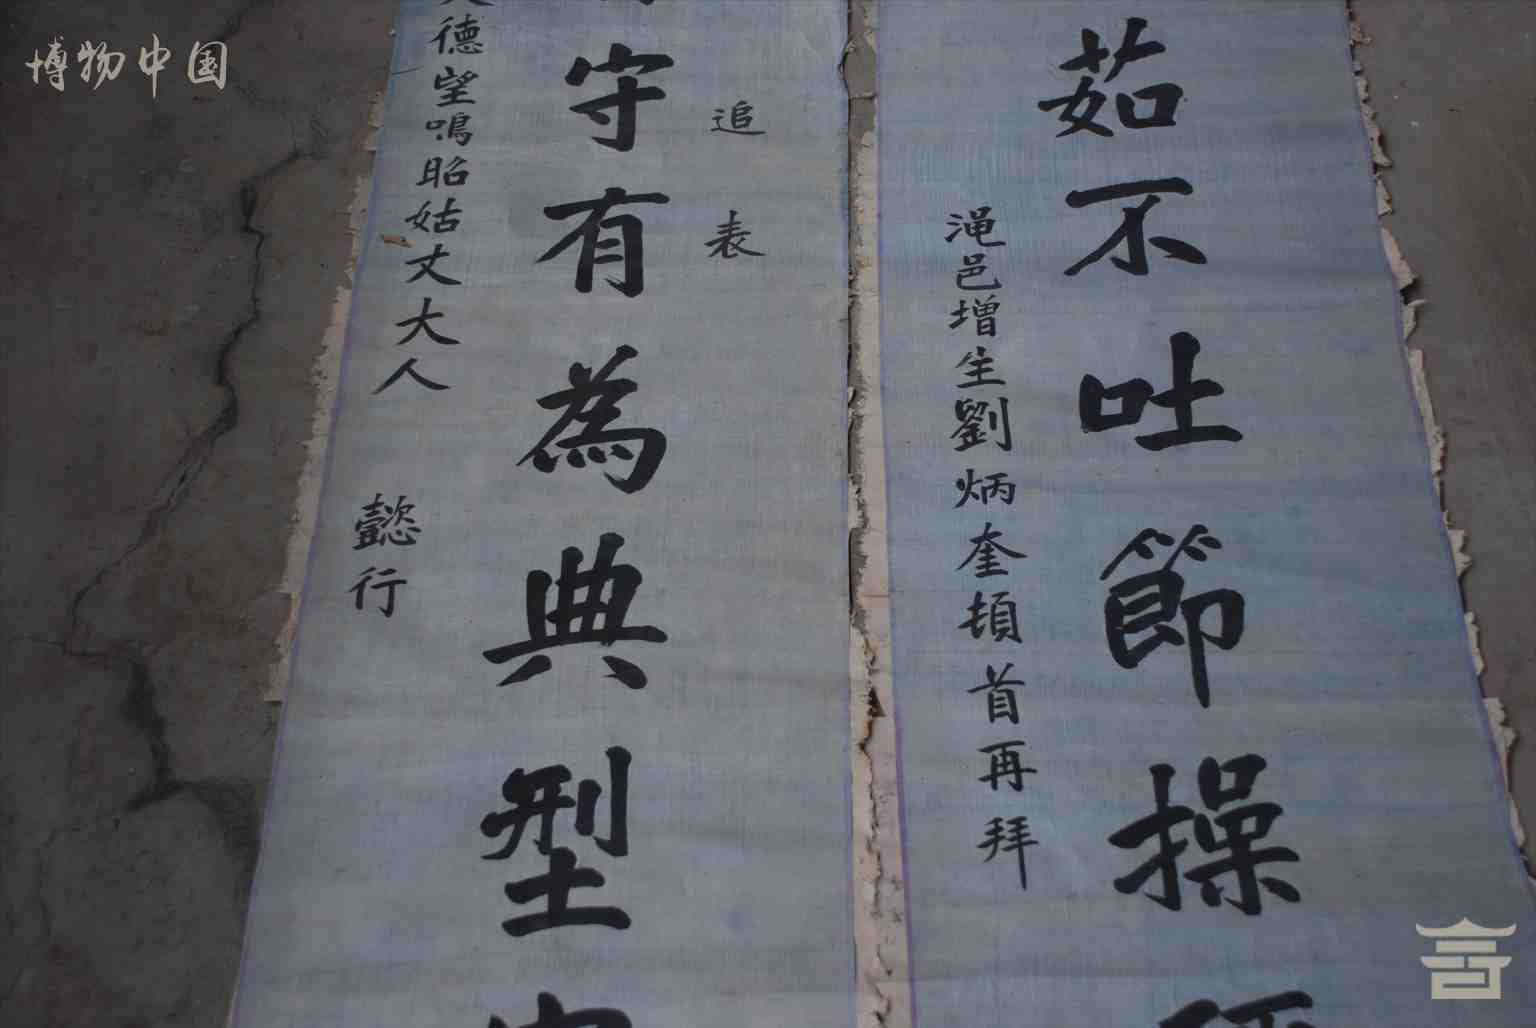 博物中国
德望鳴昭姑丈大人
懿行
守有為典型
追表
澠邑增生劉炳奎頓首再拜
茹不吐節操